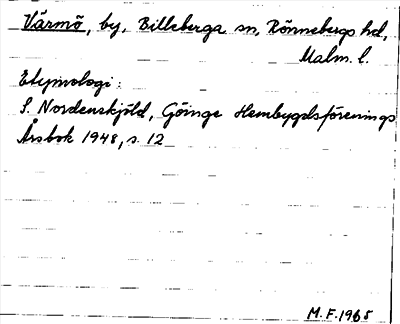 Värmö, by, Billeberga sn, Rönnebergs hd,
Malm. l.
Etymologi:
S. Nordenskjöld, Göinge Hembygdsförenings
Årsbok 1948, s. 12
M.F. 1965